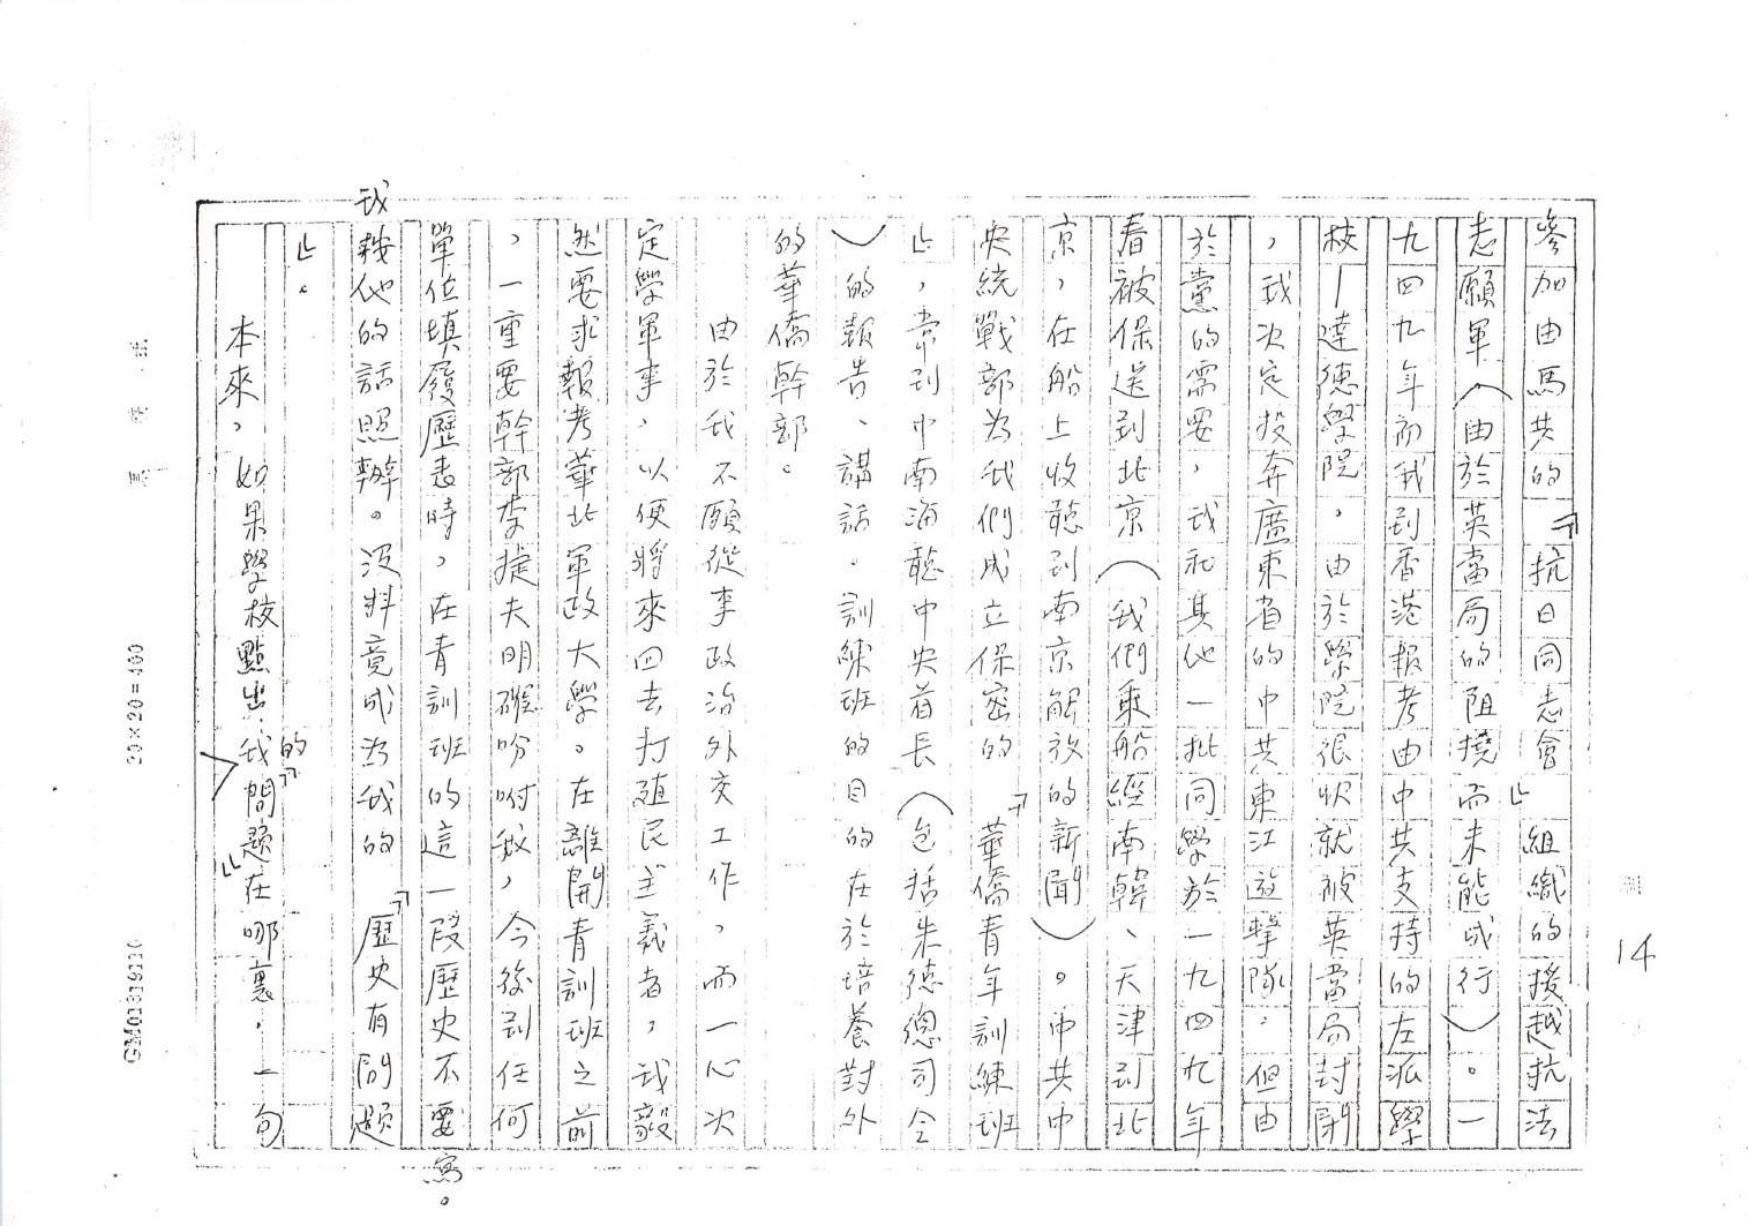 14
參加由馬共的『抗日同志會』組織的援越抗法
志願軍（由於英當局的阻撓而未能成行）。一
九四九年初我到香港報考由中共支持的左派學
校—達德學院，由於學院很快就被英當局封閉
，我決定投奔廣東省的中共東江遊擊隊，但由
於黨的需要，我和其他一批同學於一九四九年
春被保送到北京（我們乘船經南韓、天津到北
京，在船上收聽到南京解放的新聞）。中共中
央統戰部為我們成立保密的『華僑青年訓練班
』，常到中南海聽中央首長（包括朱德總司令
）的報告、講話．訓練班的目的在於培養對外
的華僑幹部。
由於我不願從事政治外交工作，而一心決
定學軍事，以便將來回去打殖民主義者，我毅
然要求報考華北軍政大學。在離開青訓班之前
，一重要幹部李捷夫明確吩咐我，今後到任何
單位填履歷表時，在青訓班的這一段歷史不要寫。
我按他的話照辦。沒料竟成為我的『歷史有問題
』。
本來，如果學校點出我的『問題』在哪裏，一句
20×20=400
GM01319110